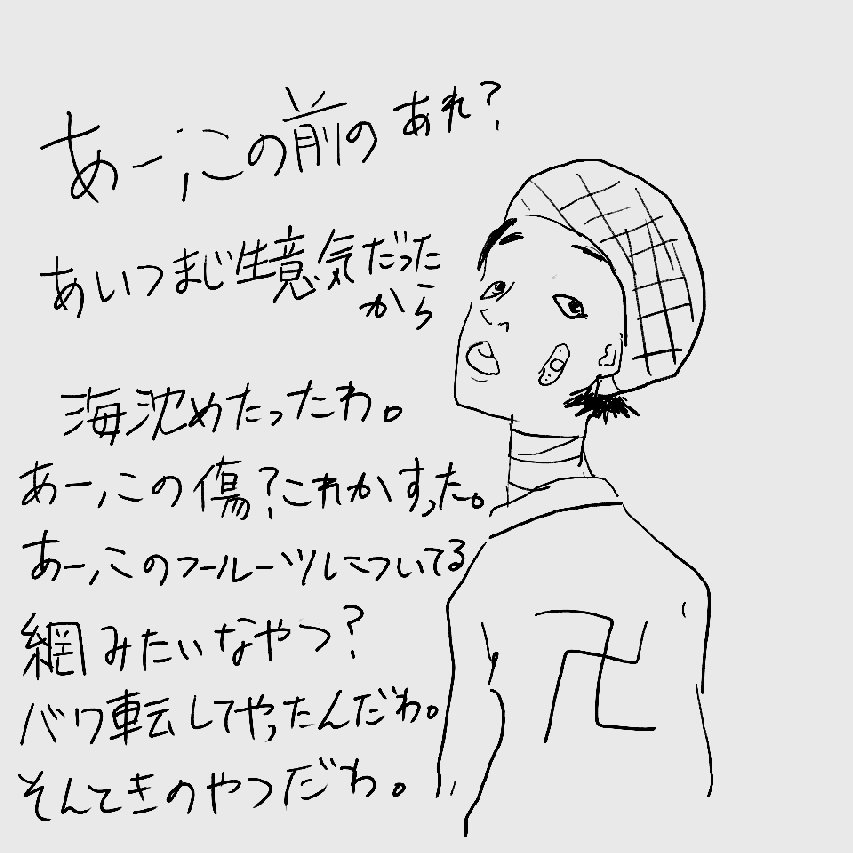 あー,この前のあれ?
あいつまじ生意気だった
から
海沈めたったわ。
あー,この傷?これかすった。
あー,このフルーツについてる
網みたいなやつ?
バク転してやったんだわ。
そんときのやつだわ。
卍